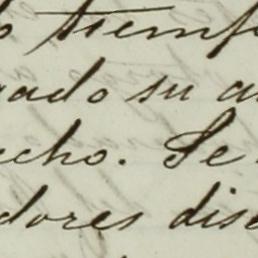 o tiemp
gado su a
echo. Se
dores dis